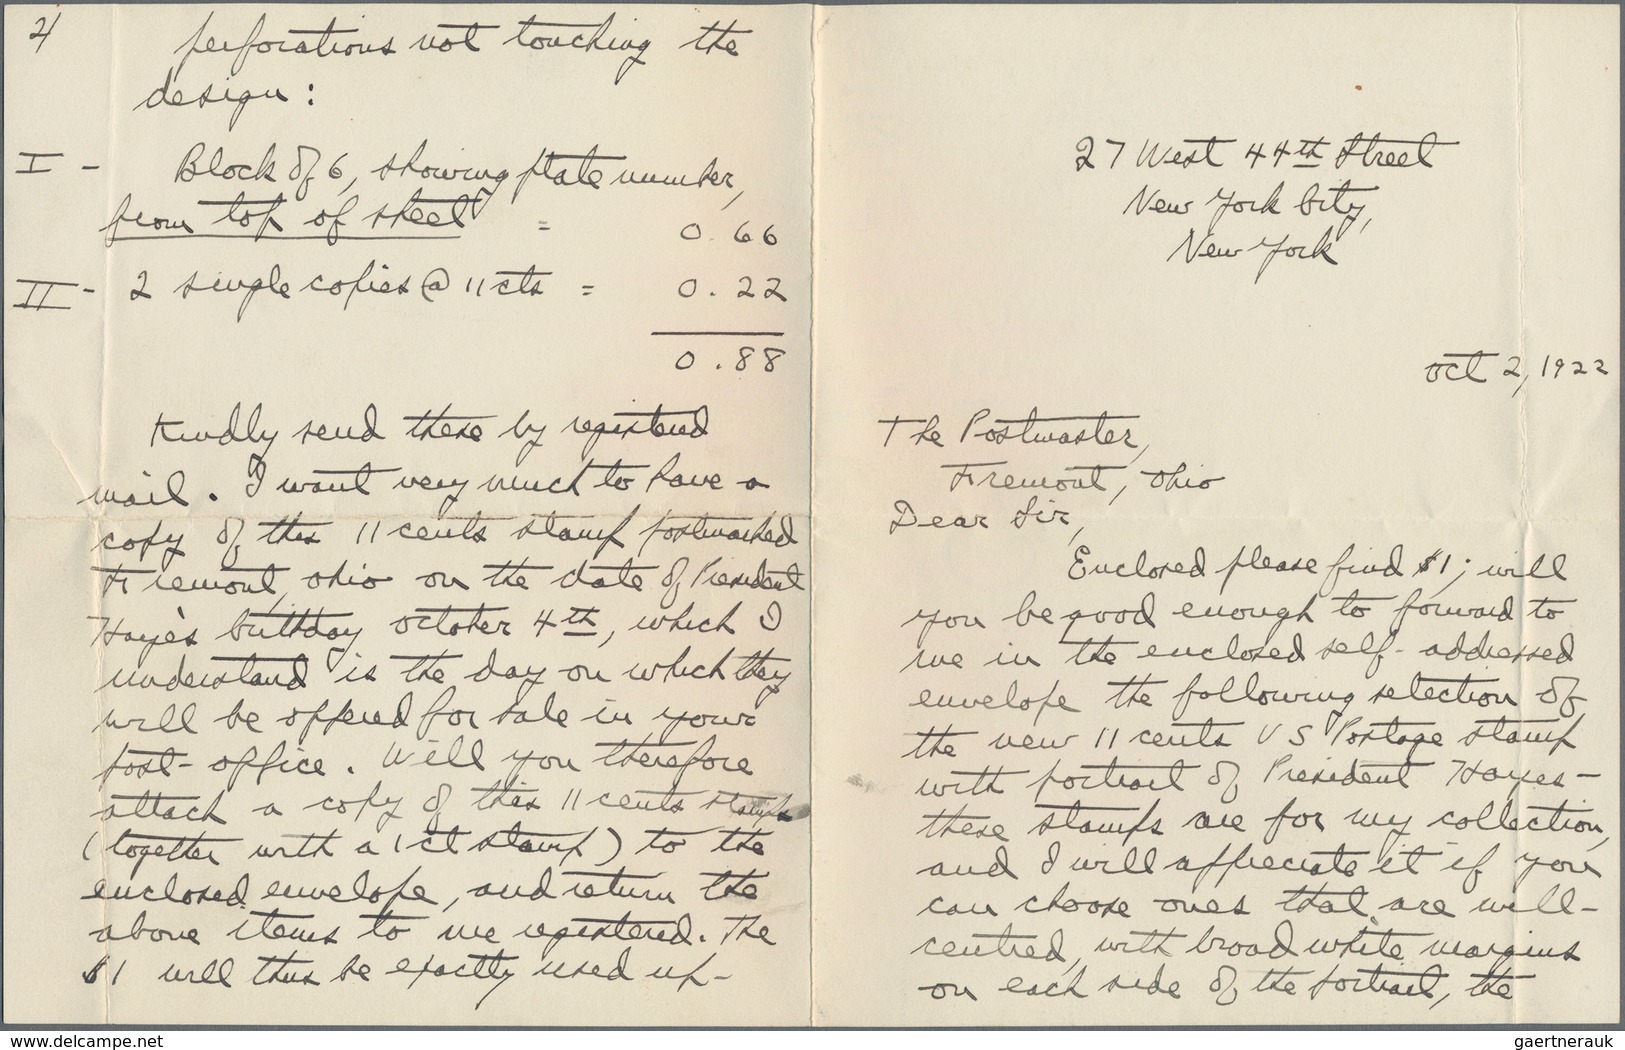 27 West 44th Street
New York City,
New York
Oct 2, 1922
The Postmaster,
Fremont, Ohio
Dear Sir,
Enclosed please find $1; will
you be good enough to forward to
me in the enclosed self-addressed
envelope the following selection of
the new 11 cents U S Postage stamp
with portrait of President Hayes -
these stamps are for my collection,
and I will appreciate it if you
can choose ones that are well-
centred, with broad white margins
on each side of the portrait, the
2/
perforations not touching the
design:
I - Block of 6, showing plate number,
from top of sheet = 0.66
II - 2 single copies @ 11 cts = 0.22
0.88
Kindly send these by registered
mail. I want very much to have a
copy of this 11 cents stamp postmarked
Fremont, Ohio on the date of President
Haye's birthday October 4th, which I
understand is the day on which they
will be offered for sale in your
post-office. Will you therefore
attach a copy of this 11 cents stamps
(together with a 1 ct stamp) to the
enclosed envelope, and return the
above items to me registered. The
$1 will thus be exactly used up-
www.delcampe.net
gaertnerauk